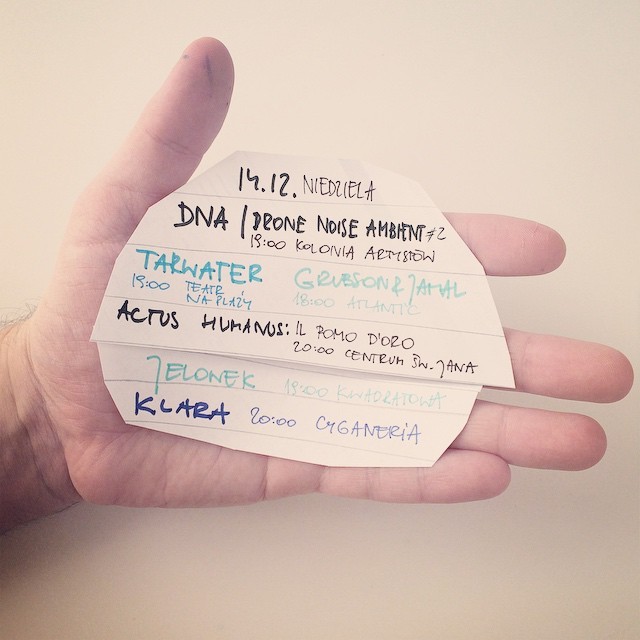 14.12. NIEDZIELA
DNA / DRONE NOISE AMBIENT #2
19:00 KOLONIA ARTYSTÓW
TARWATER
19:00 TEATR
NA PLAŻY
GRUBSON & JAMAL
18:00 ATLANTIC
ACTUS HUMANUS: IL POMO D'ORO
20:00 CENTRUM ŚW. JANA
JELONEK 19:00 KWADRATOWA
KLARA 20:00 CYGANERIA